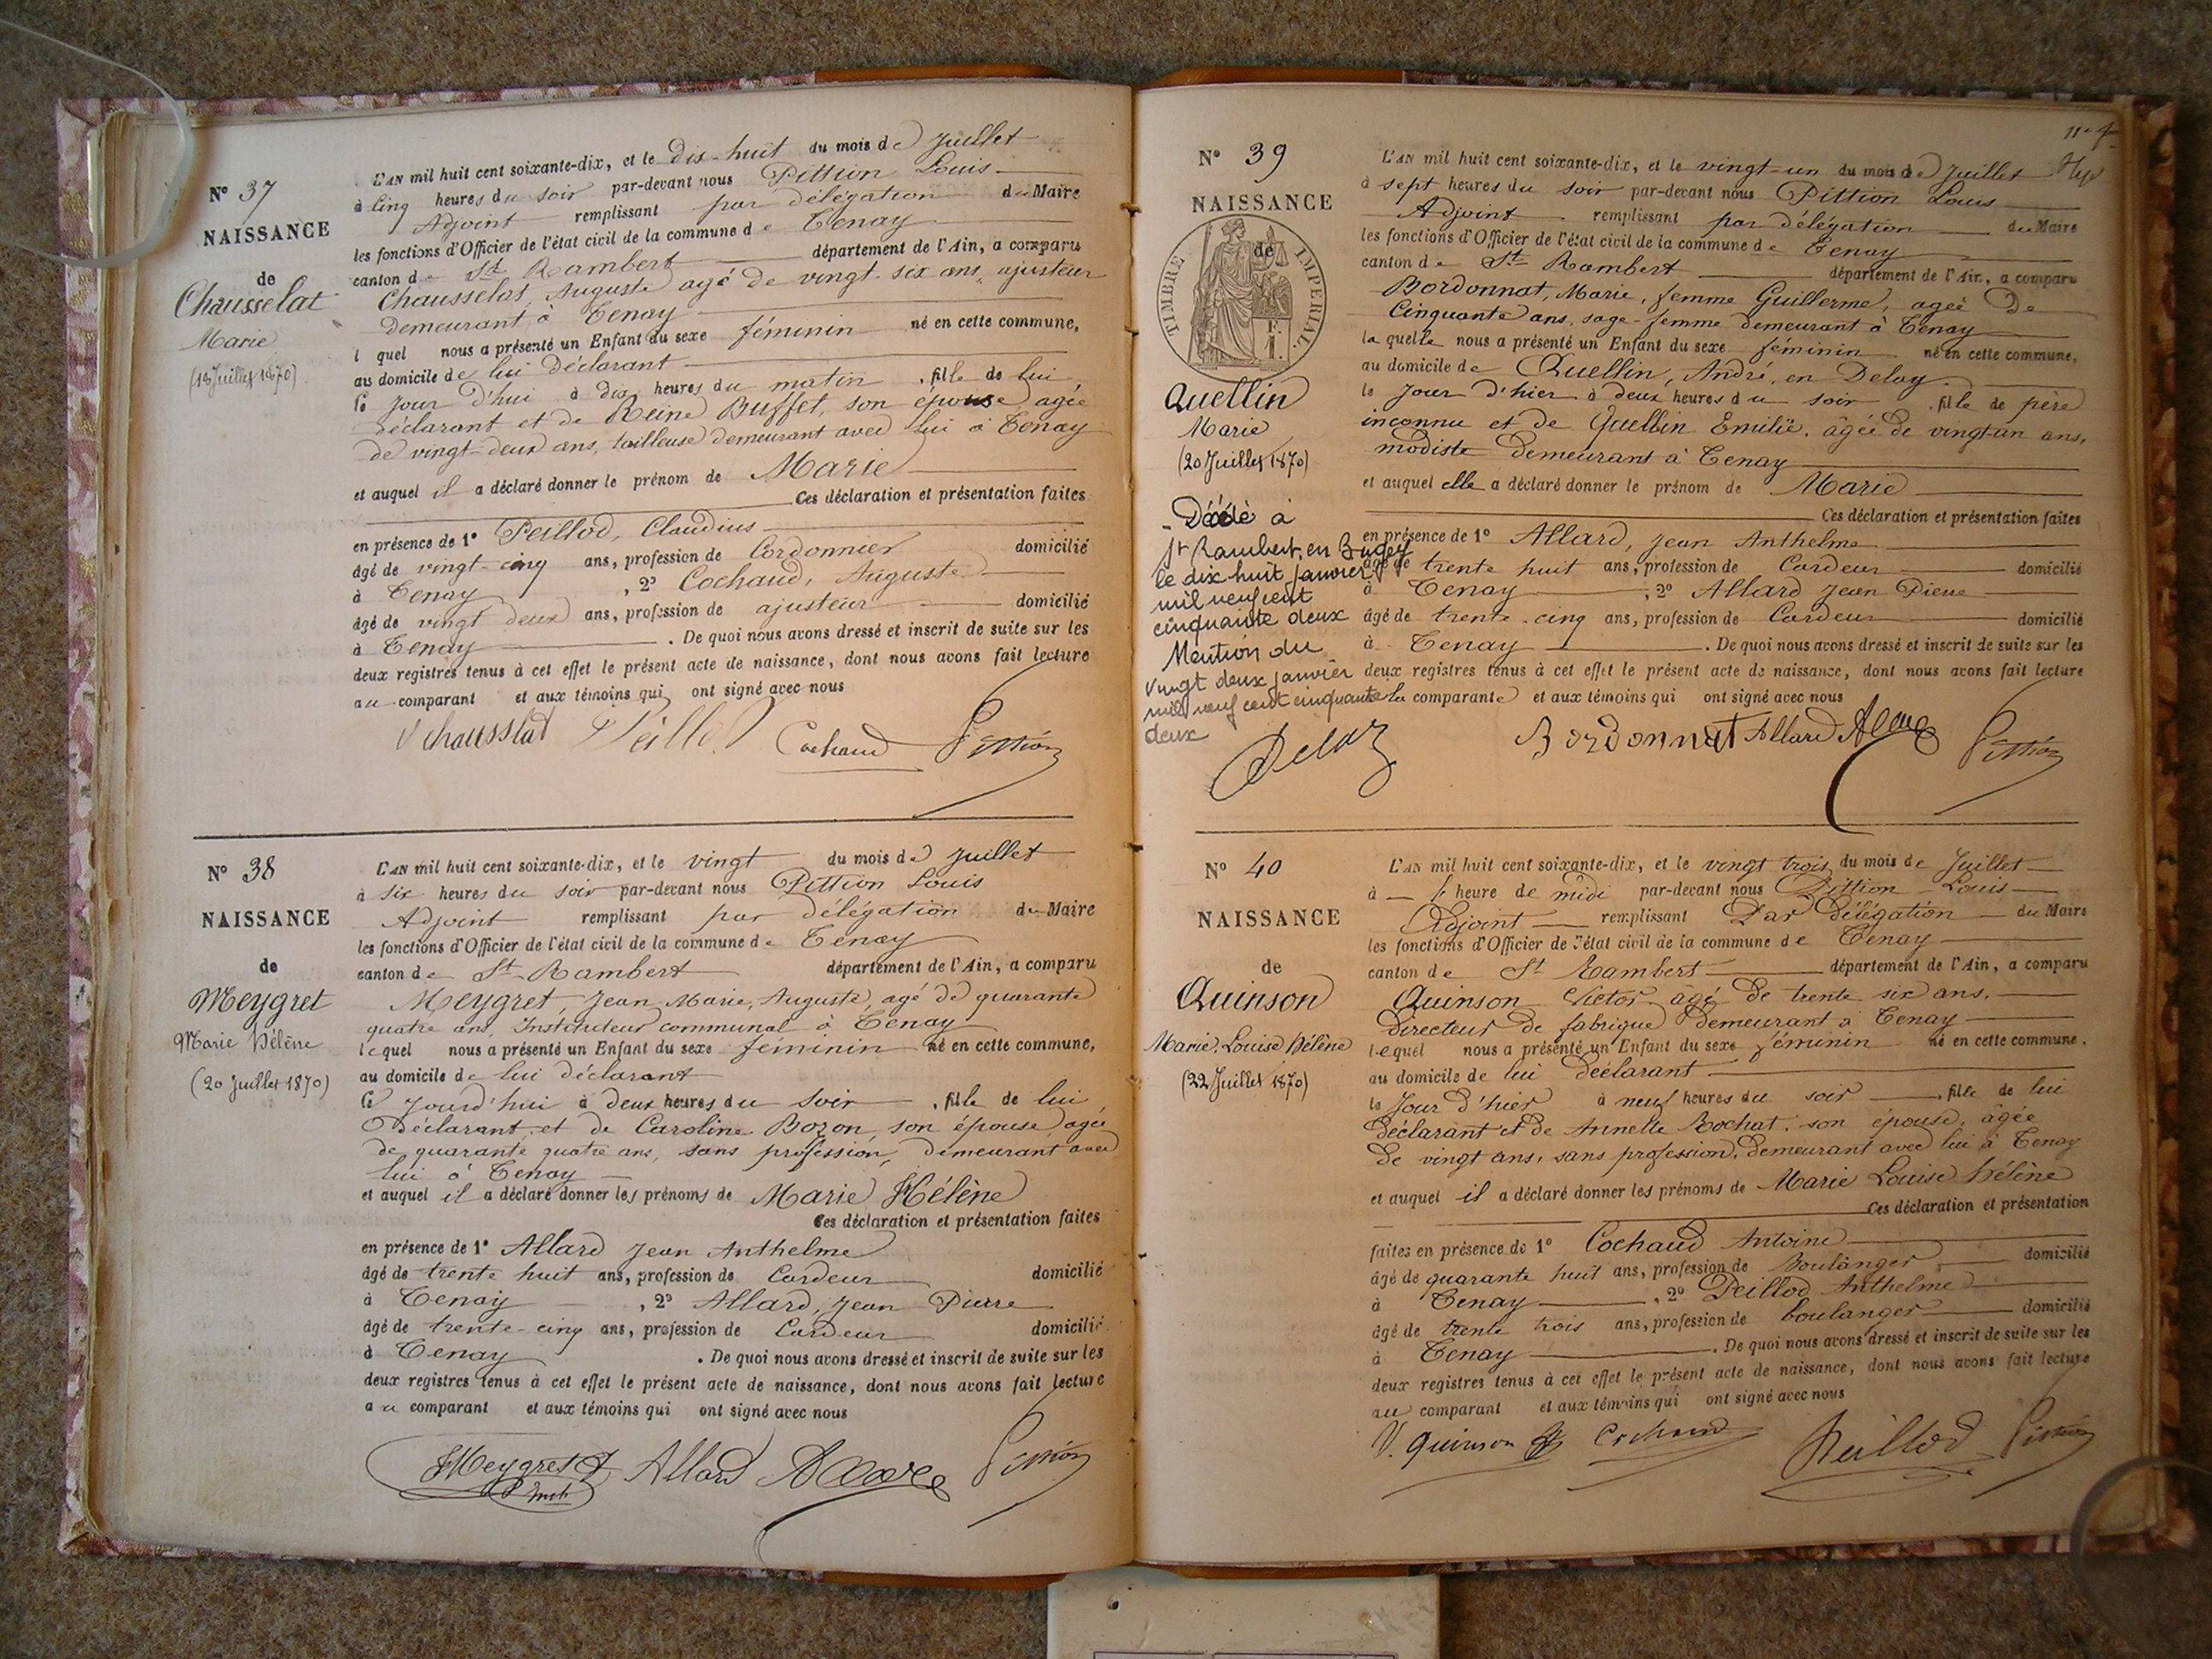 N° 37
NAISSANCE
de
Chausselat
Marie
(18 Juillet 1870)
L'AN mil huit cent soixante-dix, et le dix-huit du mois de Juillet
à cinq heures du soir par-devant nous Pittion Louis
Adjoint remplissant par délégation du Maire
les fonctions d'Officier de l'état civil de la commune de Tenay
canton de St Rambert département de l'Ain, a comparu
Chausselat, Auguste agé de vingt-six ans, ajusteur
demeurant à Tenay
l quel nous a présenté un Enfant du sexe féminin né en cette commune,
au domicile de lui déclarant
le jour d'hui à dix heures du matin, fille de lui
déclarant et de Reine Buffet, son épouse agée
de vingt-deux ans, tailleuse demeurant avec lui à Tenay
et auquel il a déclaré donner le prénom de Marie
Ces déclaration et présentation faites
en présence de 1° Peillod, Claudius
âgé de vingt-cinq ans, profession de Cordonnier domicilié
à Tenay, 2° Cochaud, Auguste
âgé de vingt deux ans, profession de ajusteur domicilié
à Tenay. De quoi nous avons dressé et inscrit de suite sur les
deux registres tenus à cet effet le présent acte de naissance, dont nous avons fait lecture
au comparant et aux témoins qui ont signé avec nous
Chausslat Peillod Cochaud Pittion
N° 38
NAISSANCE
de
Meygret
Marie Hélène
(20 Juillet 1870)
L'AN mil huit cent soixante-dix, et le vingt du mois de Juillet
à six heures du soir par-devant nous Pittion Louis
Adjoint remplissant par délégation du Maire
les fonctions d'Officier de l'état civil de la commune de Tenay
canton de St Rambert département de l'Ain, a comparu
Meygret, Jean-Marie, Auguste, agé de quarante
quatre ans, Instituteur communal à Tenay
lequel nous a présenté un Enfant du sexe féminin né en cette commune,
au domicile de lui déclarant
le jourd'hui à deux heures du soir, fille de lui
Déclarant, et de Caroline Bozon, son épouse, agée
de quarante quatre ans, sans profession, demeurant avec
lui à Tenay
et auquel il a déclaré donner les prénoms de Marie Hélène
Ces déclaration et présentation faites
en présence de 1° Allard Jean Anthelme
âgé de trente huit ans, profession de Cardeur domicilié
à Tenay, 2° Allard, Jean Pierre
âgé de trente-cinq ans, profession de Cardeur domicilié
à Tenay. De quoi nous avons dressé et inscrit de suite sur les
deux registres tenus à cet effet le présent acte de naissance, dont nous avons fait lecture
au comparant et aux témoins qui ont signé avec nous
Meygret Allard Pittion
N° 39
NAISSANCE
de
TIMBRE IMPERIAL
Quellin
Marie
(20 Juillet 1870)
Décédé à
St Rambert en Bugey
le dix huit janvier
mil neuf cent
cinquante deux
Mention du
vingt deux janvier
mil neuf cent cinquante
deux
L'AN mil huit cent soixante-dix, et le vingt-un du mois de Juillet
à sept heures du soir par-devant nous Pittion Louis
Adjoint remplissant par délégation du Maire
les fonctions d'Officier de l'état civil de la commune de Tenay
canton de St Rambert département de l'Ain, a comparu
Bordonnat, Marie, femme Guillerme, agée de
Cinquante ans, sage-femme demeurant à Tenay
laquelle nous a présenté un Enfant du sexe féminin né en cette commune,
au domicile de Quellin, André, en Deloy
le jour d'hier à deux heures du soir, fille de père
inconnu et de Quellin Emilie, âgée de vingt-un ans,
modiste demeurant à Tenay
et auquel elle a déclaré donner le prénom de Marie
Ces déclaration et présentation faites
en présence de 1° Allard, Jean Anthelme
âgé de trente huit ans, profession de Cardeur domicilié
à Tenay, 2° Allard Jean Pierre
âgé de trente-cinq ans, profession de Cardeur domicilié
à Tenay. De quoi nous avons dressé et inscrit de suite sur les
deux registres tenus à cet effet le présent acte de naissance, dont nous avons fait lecture
la comparante et aux témoins qui ont signé avec nous
Bordonnat Allard Pittion
N° 40
NAISSANCE
de
Quinson
Marie Louise Hélène
(22 Juillet 1870)
L'AN mil huit cent soixante-dix, et le vingt trois du mois de Juillet
à l'heure de midi par-devant nous Pittion Louis
Adjoint remplissant Par Délégation du Maire
les fonctions d'Officier de l'état civil de la commune de Tenay
canton de St Rambert département de l'Ain, a comparu
Quinson Victor âgé de trente six ans,
Directeur de fabrique demeurant à Tenay
lequel nous a présenté un Enfant du sexe féminin né en cette commune.
au domicile de lui déclarant
le Jour d'hier à neuf heures du soir, fille de lui
Déclarant et de Annette Rochat, son épouse, âgée
de vingt ans, sans profession, demeurant avec lui à Tenay
et auquel il a déclaré donner les prénoms de Marie Louise Hélène
Ces déclaration et présentation
faites en présence de 1° Cochaud Antoine
âgé de quarante huit ans, profession de Boulanger domicilié
à Tenay, 2° Peillod Anthelme
âgé de trente trois ans, profession de boulanger domicilié
à Tenay. De quoi nous avons dressé et inscrit de suite sur les
deux registres tenus à cet effet le présent acte de naissance, dont nous avons fait lecture
au comparant et aux témoins qui ont signé avec nous
V. Quinson Cochaud Peillod Pittion